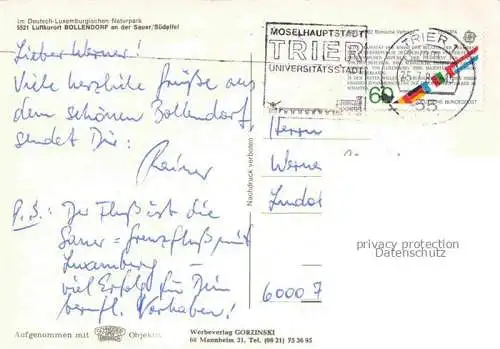 Im Deutsch-Luxemburgischen Naturpark
5521 Luftkurort BOLLENDORF an der Sauer/Südeifel
Lieber Werner!
Viele herzliche Grüße aus
dem schönen Bollendorf
sendet Dir:
Rainer
P.S.: Der Fluß ist die
Sauer = Grenzfluß mit
Luxemburg –
viel Erfolg für Dein
berufl. Vorhaben!
Aufgenommen mit
Objektiv.
Werbeverlag GORZINSKI
68 Mannheim 21, Tel. (06 21) 75 36 95
Nachdruck verboten
MOSELHAUPTSTADT
TRIER
UNIVERSITÄTSSTADT
TRIER
60
DEUTSCHE BUNDESPOST
Herrn
Werne
6000 7
privacy protection
Datenschutz